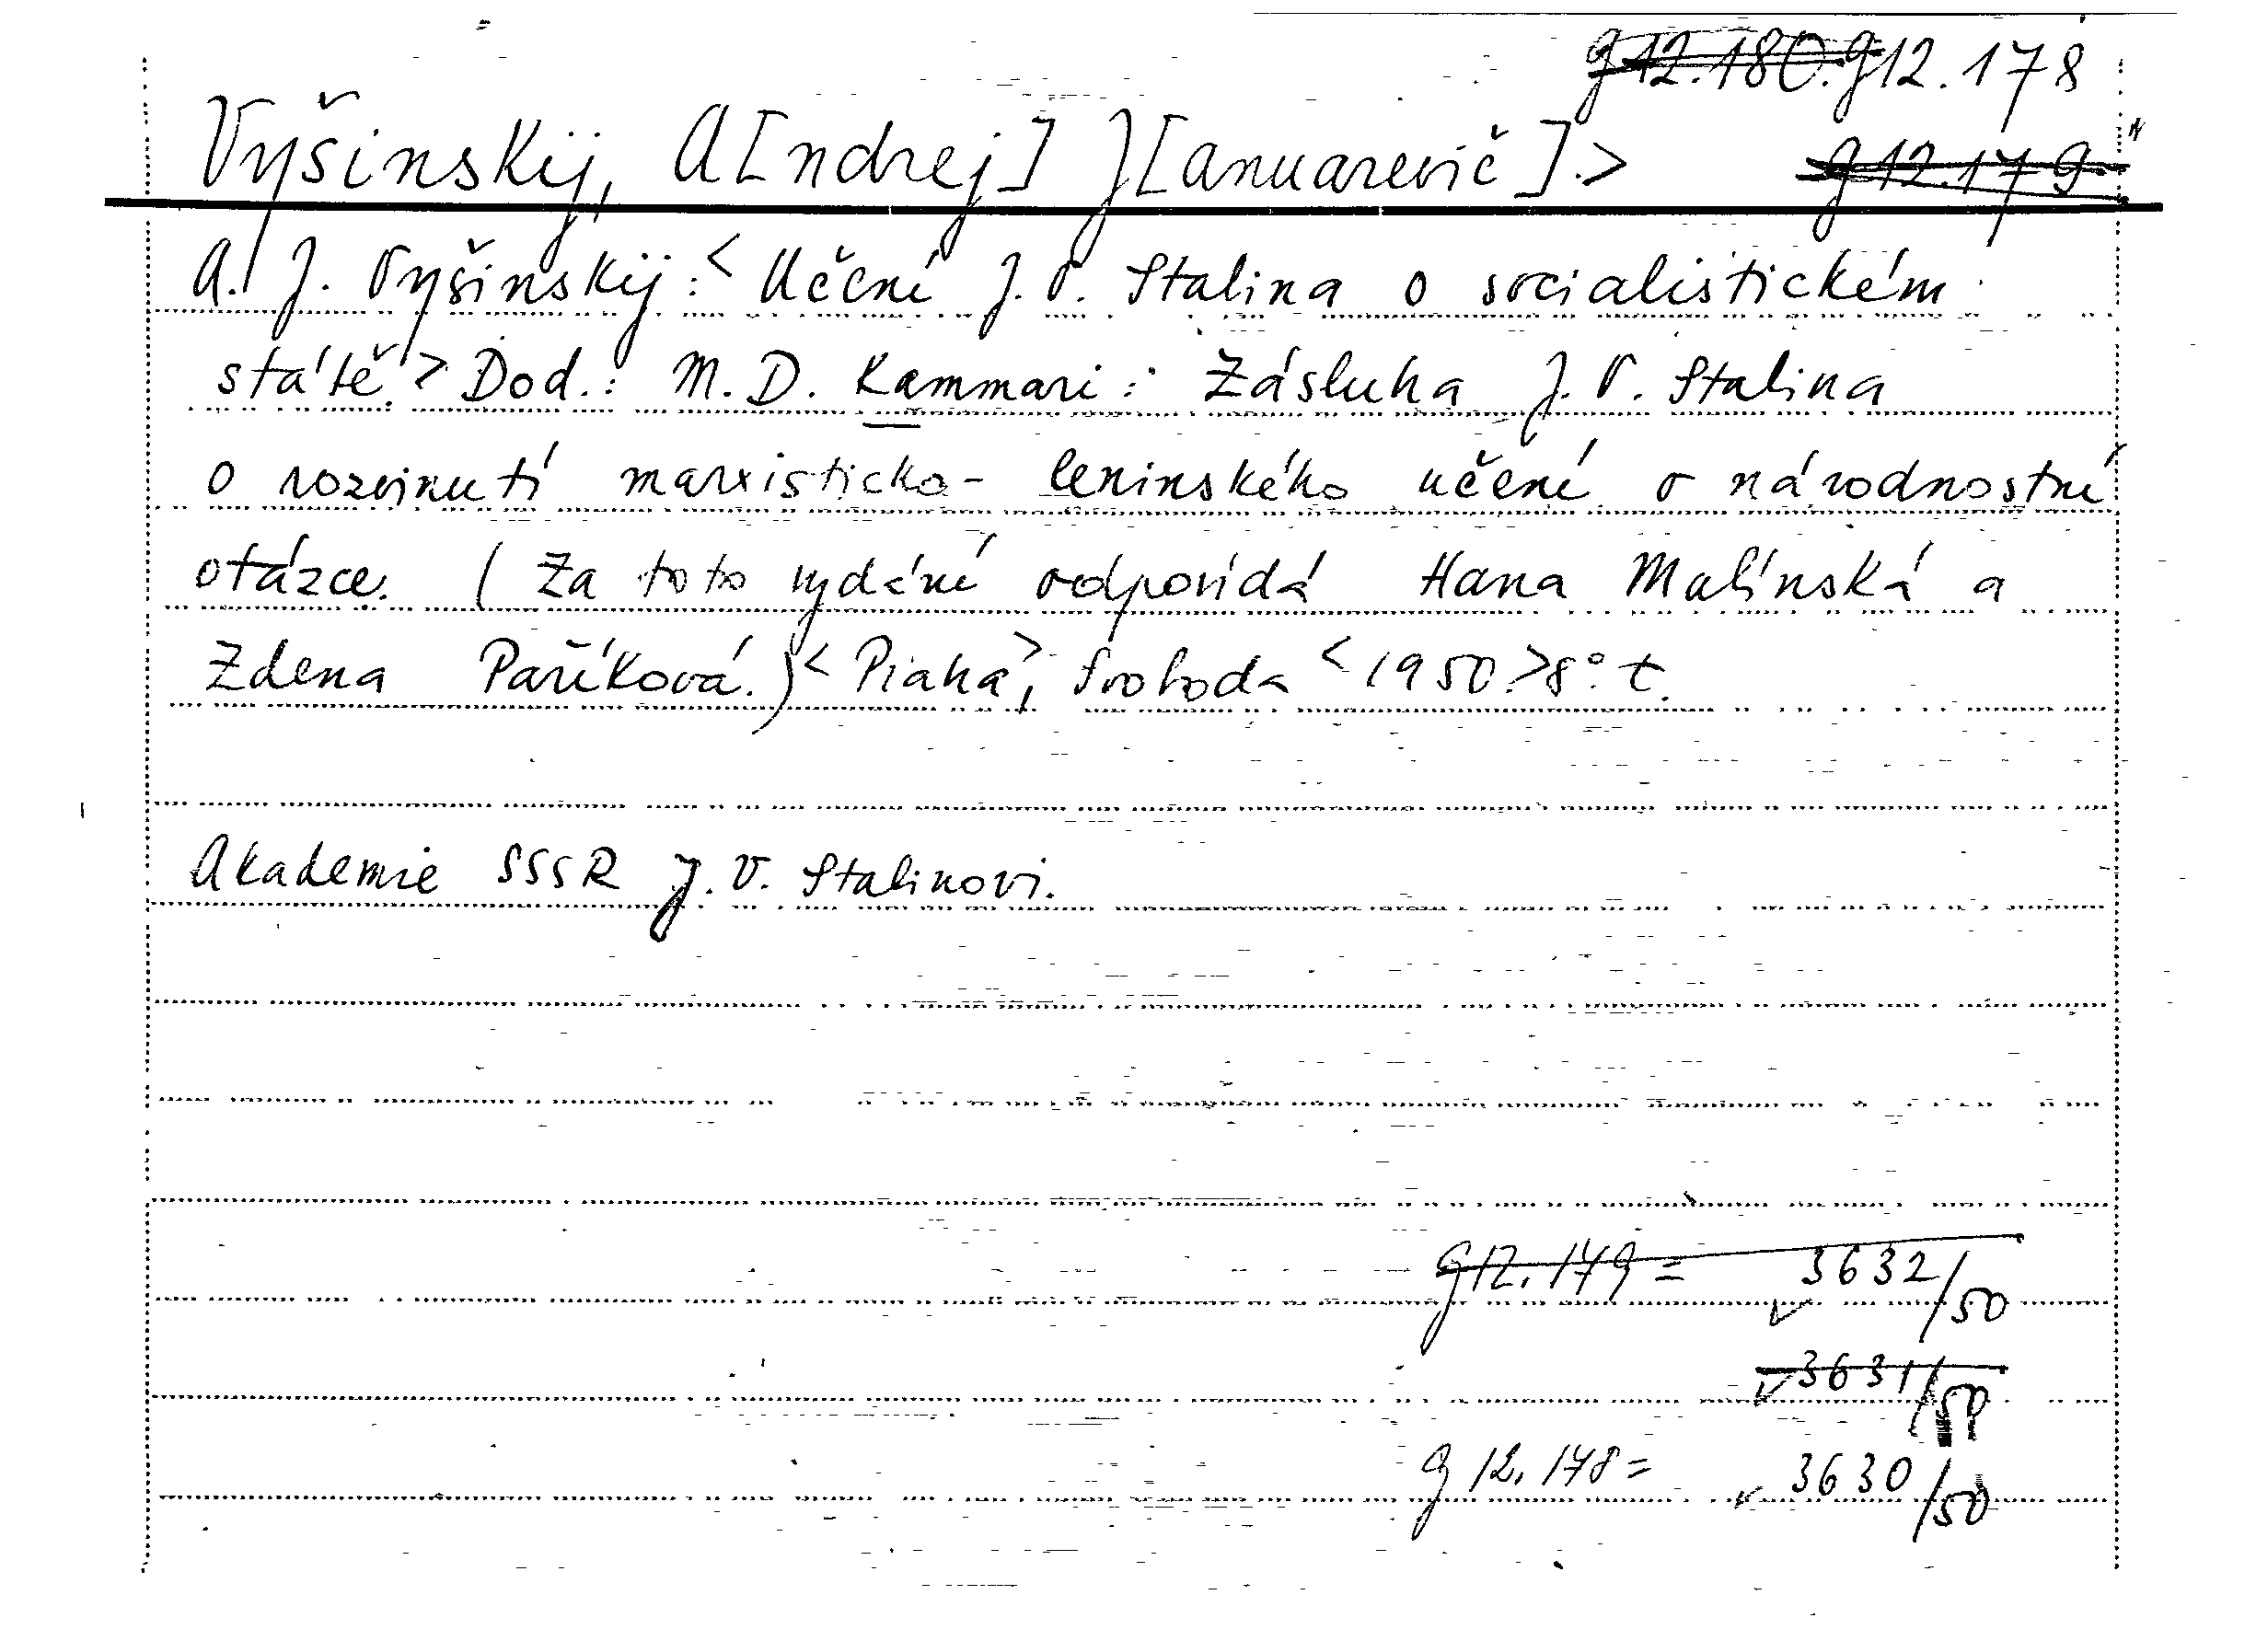 g12.180. g12.178
Vyšinskij, A[ndrej] J[anuarevič].> g12.179.
A. J. Vyšinskij: < Učení J. V. Stalina o socialistickém
státě. > Dod.: M. D. Kammari: Zásluha J. V. Stalina
o rozvinutí marxisticko-leninského učení o národnostní
otázce. (Za toto vydání odpovídá Hana Malínská a
Zdena Paříková.) < Praha, > Svoboda < 1950. > 8°. t.
Akademie SSSR J. V. Stalinovi.
g12.179 = 3632/50
3631/50
g 12.178 = 3630/50